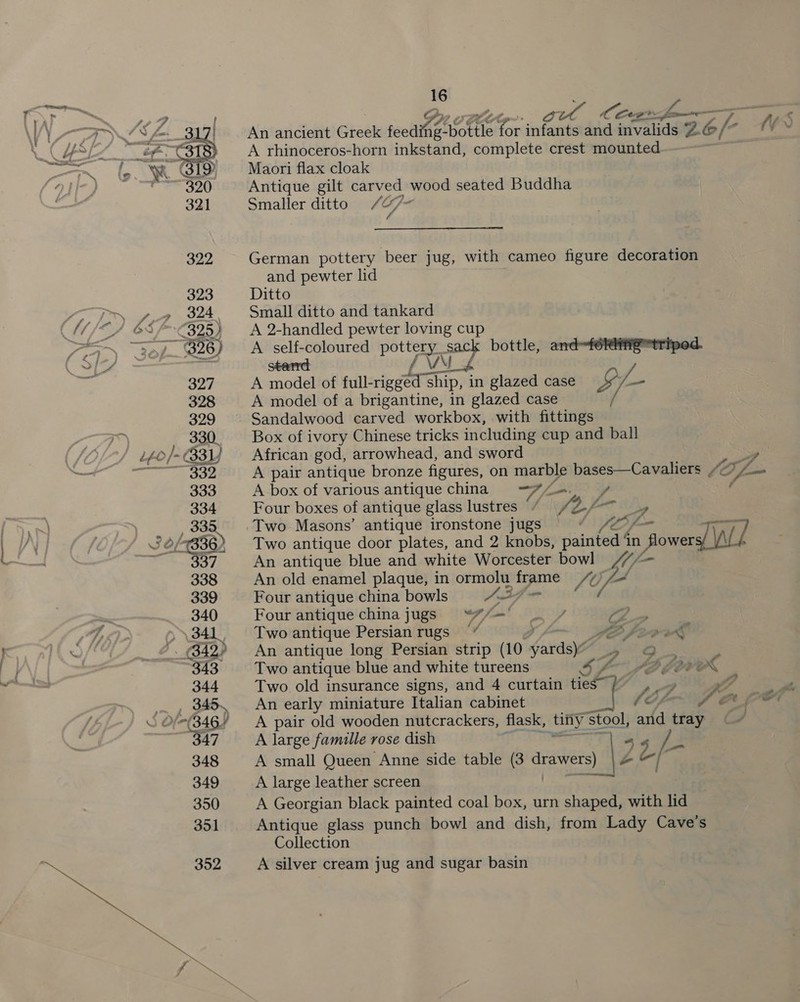 16
317 An ancient Greek feeding-bottle for infants and invalids 26/-
318 A rhinoceros-horn inkstand, complete crest mounted
319 Maori flax cloak
320 Antique gilt carved wood seated Buddha
321 Smaller ditto 10/-
322 German pottery beer jug, with cameo figure decoration
and pewter lid
323 Ditto
324 Small ditto and tankard
65/- 325 A 2-handled pewter loving cup
30/- 326 A self-coloured pottery sack bottle, and folding tripod
stand
327 A model of full-rigged ship, in glazed case
328 A model of a brigantine, in glazed case
329 Sandalwood carved workbox, with fittings
330 Box of ivory Chinese tricks including cup and ball
40/- 331 African god, arrowhead, and sword
332 A pair antique bronze figures, on marble bases—Cavaliers 10/-
333 A box of various antique china 7/-
334 Four boxes of antique glass lustres 12/-
335 Two Masons' antique ironstone jugs 10/-
30/- 336 Two antique door plates, and 2 knobs, painted in flowers
337 An antique blue and white Worcester bowl
338 An old enamel plaque, in ormolu frame 10/-
339 Four antique china bowls
340 Four antique china jugs
341 Two antique Persian rugs
342 An antique long Persian strip (10 yards)
343 Two antique blue and white tureens
344 Two old insurance signs, and 4 curtain ties
345 An early miniature Italian cabinet
346 A pair old wooden nutcrackers, flask, tiny stool, and tray
347 A large famille rose dish
348 A small Queen Anne side table (3 drawers) 22/-
349 A large leather screen
350 A Georgian black painted coal box, urn shaped, with lid
351 Antique glass punch bowl and dish, from Lady Cave's
Collection
352 A silver cream jug and sugar basin